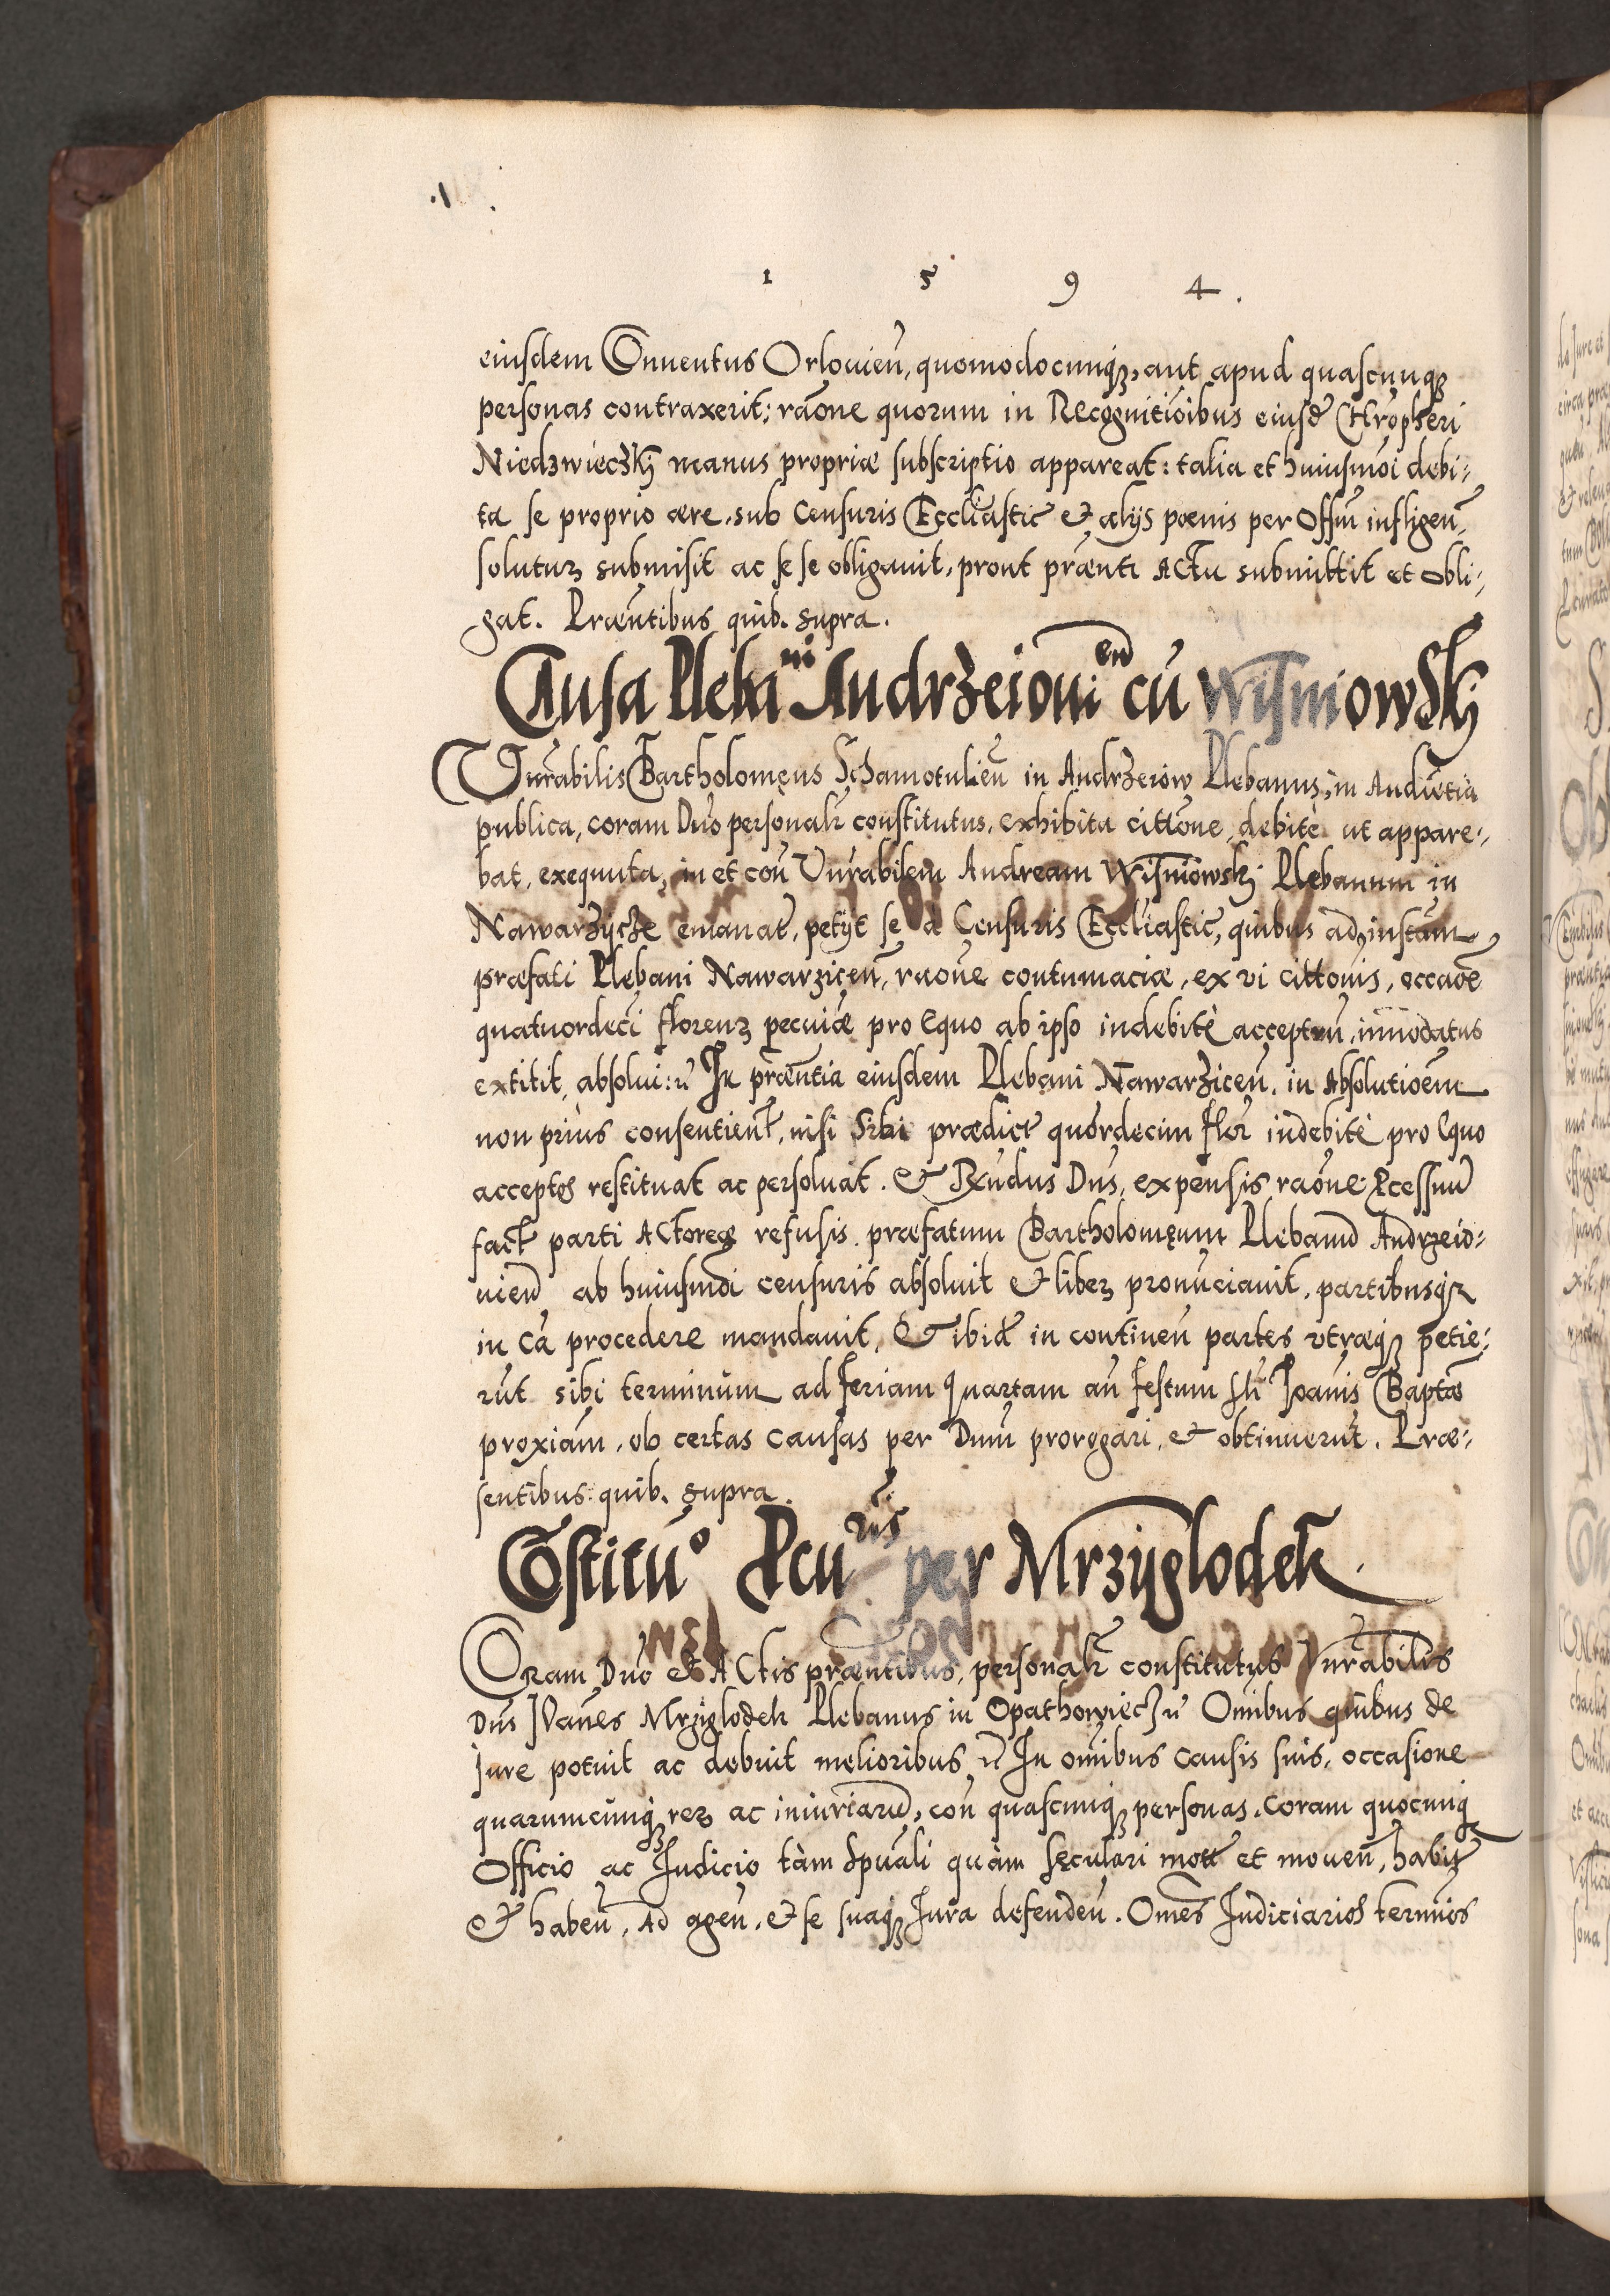 1 5 9 4.
eiusdem Conuentus Orlouien̄, quomodocunq₃, aut apud quascunq₃
personas contraxerit: rāone quorum in Recognitiōibus eiusd̄ Chrophēri
Niedzwieczkj manus propriæ subscriptio appareat: talia et huiusmōi debi-
ta se proprio ære. sub Censuris Eccliāstic̄ et alijs pœnis per Offm̄ infligen̄,
soluturz submisit ac se se obligauit, prout præn̄ti Actu submittit et obli-
gat. Præn̄tibus quib. supra.
Causa Plebani Andrzeiouien̄ cū Wisniowskj
Vnr̄abilis Bartholomęus Schamotulien̄ in Andrzeiow Plebanus, in Audiētia
publica, coram Dn̄o personalr̄ constitutus, exhibita cittōne, debitè ut appare-
bat, exequuta, in et con̄ Vnr̄abilem Andream Wisniowskj Plebanum in
Nawarzycze emanat̄, petijt se à Censuris Eccliāstic̄, quibus ad instām
præfati Plebani Nawarzicen̄, raōne contumaciæ, ex vi cittōnis, occaōe
quatuordecī florenz pecuniæ pro Equo ab ipso indebitè acceptrū, innodatus
extitit, absolui: ñ In præn̄tia eiusdem Plebani Nawarzicen̄. in Absolutiōem
non prius consentient̄, nisi Sibi prædict̄ quordecim flōr indebitè pro Equo
acceptos restituat ac persoluat. Et Rn̄dus Dn̄s, expensis raōne Pcessuū
fact̄ parti Actoreæ refusis. præfatum Bartholomęum Plebanū Andrzeio-
uien̄ ab huiusmōi censuris absoluit et liberz pronūciauit, partibusq₃
in Cā procedere mandauit. Et ibid̄ in continen̄ partes vtræq₃ petie-
rūt sibi terminum ad feriam quartam an̄ festum Sti Joānis Baptæ
proxiām, ob certas causas per Dnm̄ prorogari, et obtinuerūt. Præ-
sentibus quib. supra.
Cōstitū° Pcu rūs per Mrzyglodek.
Coram Dn̄o et Actis præn̄tibus, personalr̄ constitutus Vnr̄abilis
Dn̄s Joan̄es Mrziglodek Plebanus in Opathowiecz ñ Omibus quibus de
Jure potuit ac debuit melioribus ñ In omībus causis suis, occasione
quarumcunq₃ rerz ac iniuriarū, con̄ quascunq₃ personas, coram quocunq₃
Officio ac Judicio tàm Spuāli quàm sęculari mott̄ et mouen̄, habit̄
et haben̄. Ad agen̄. et se suaq₃ Jura defenden̄. Omēs Judiciarios termīos